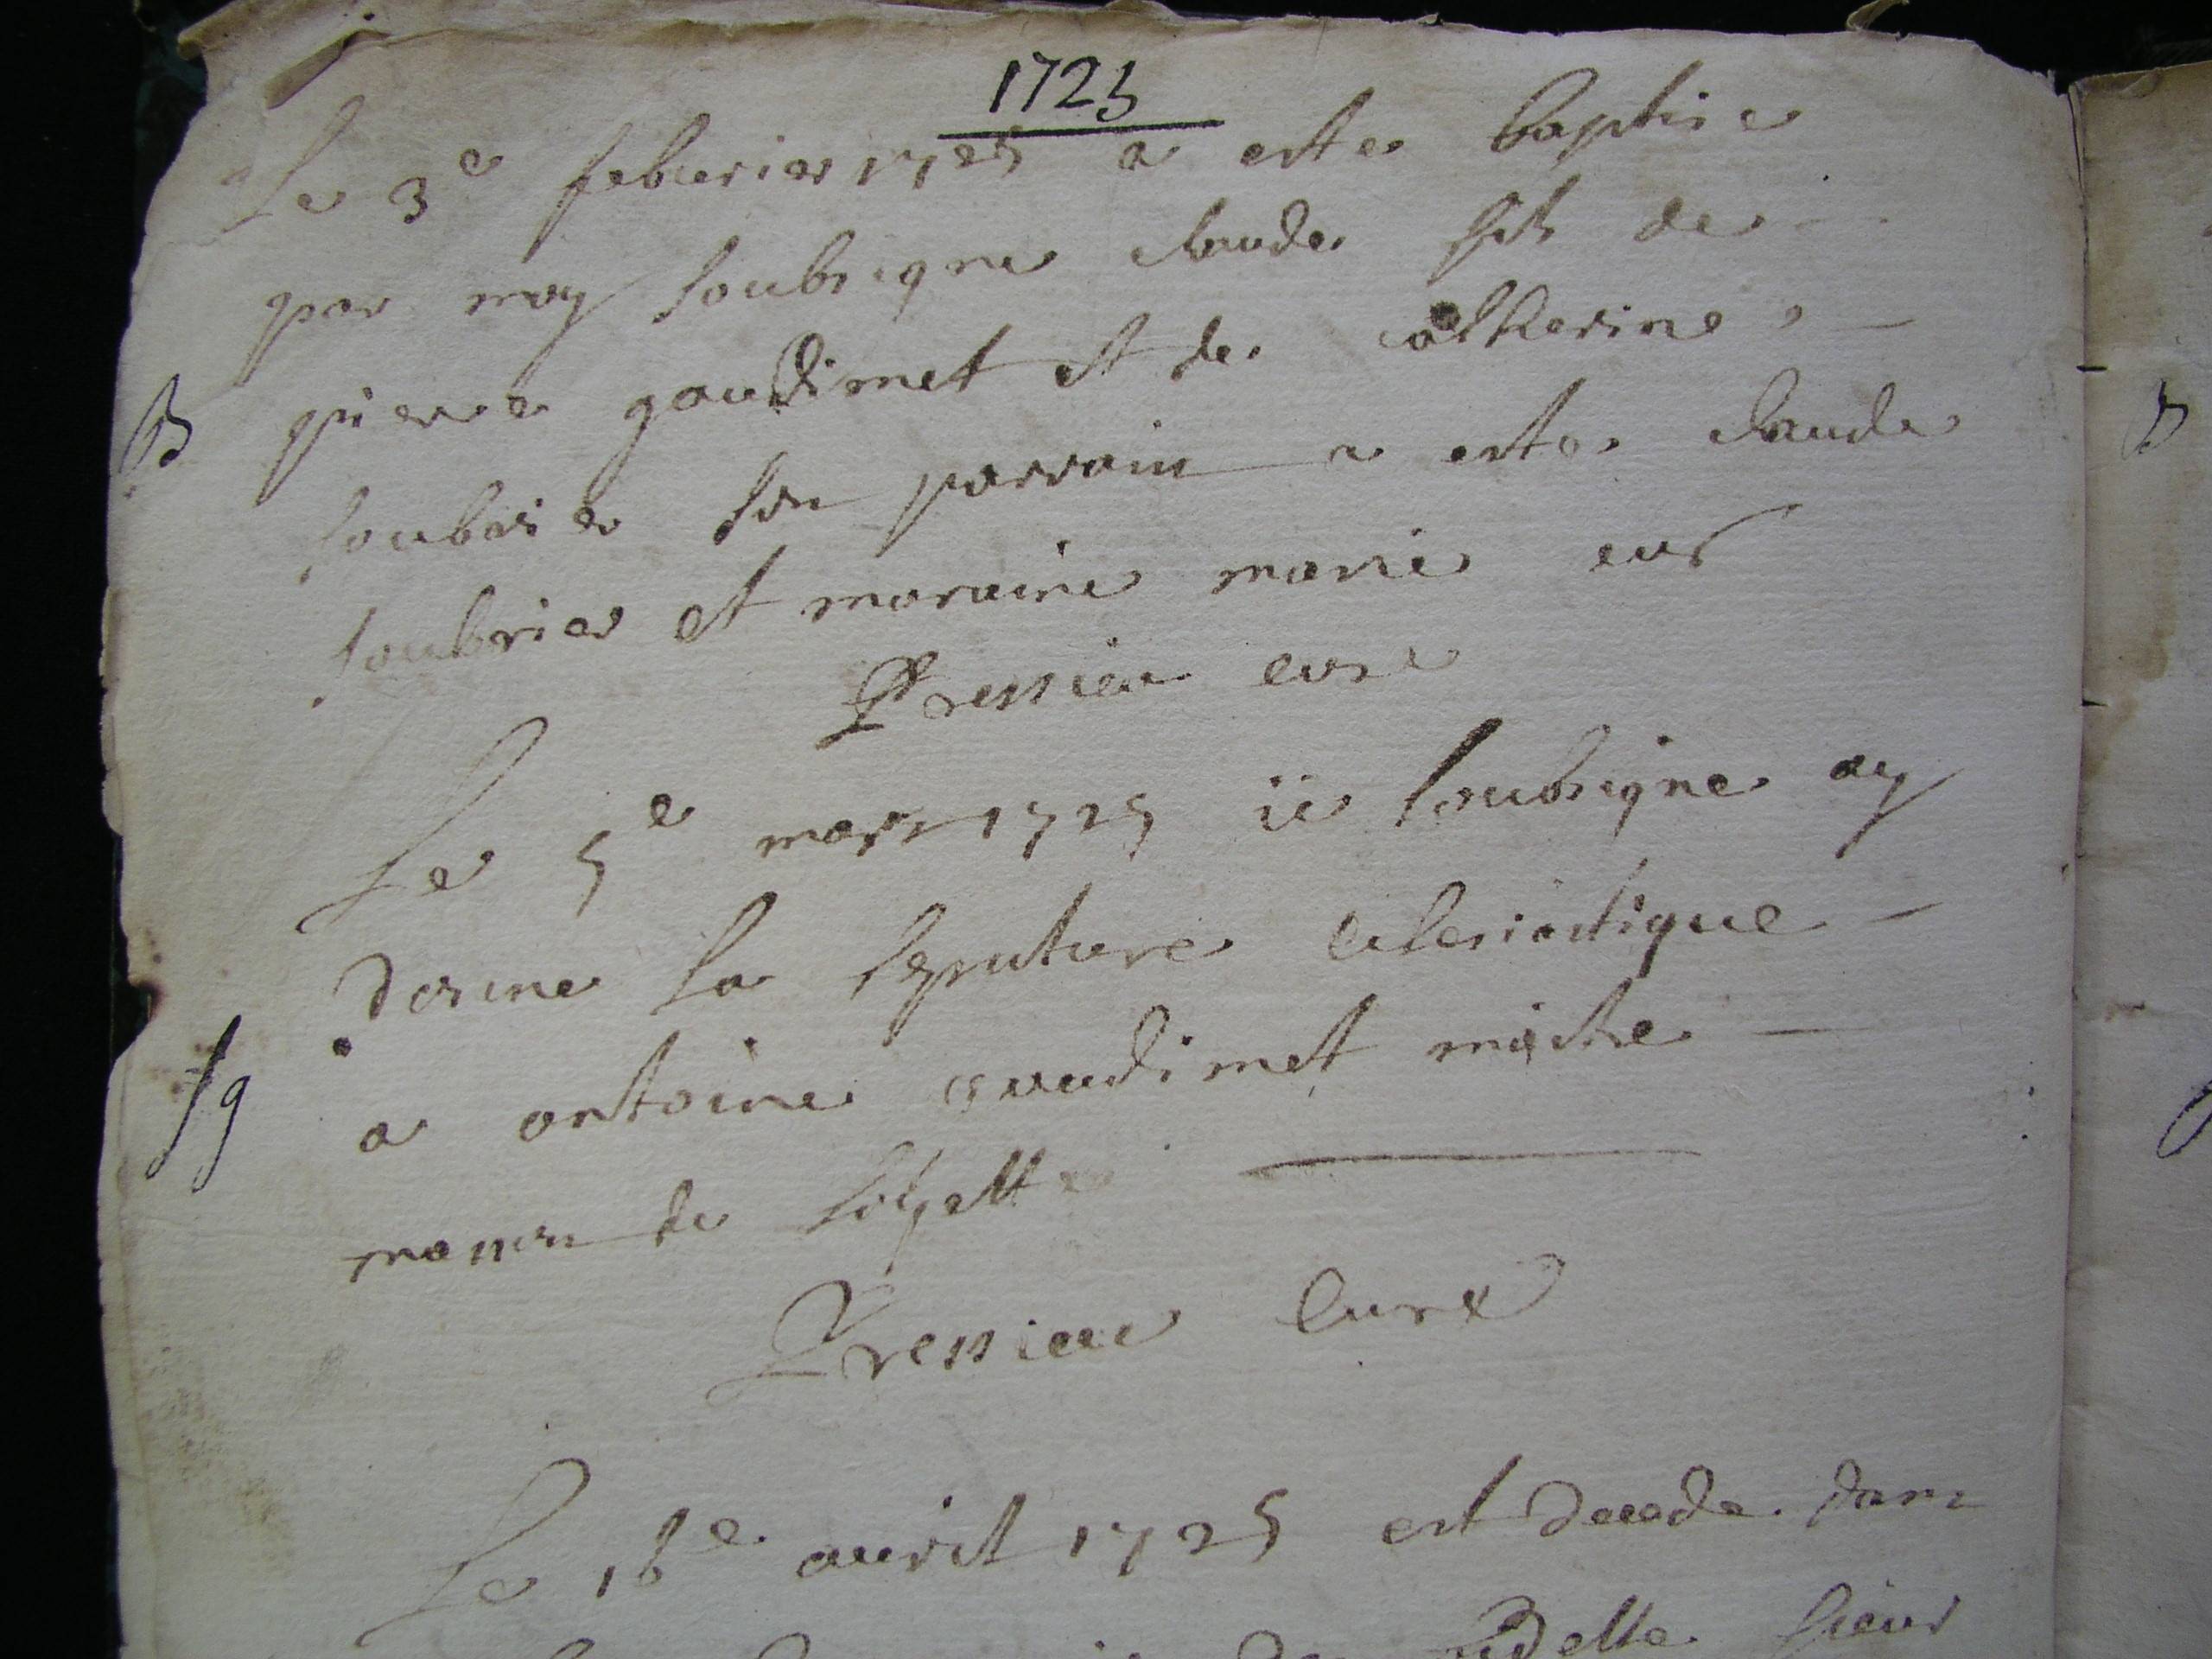 1725
Le 3e febvrier 1725 a este baptise
par moy soubsigne claude fils de
B pierre gaudimet et de catherine
soubrier son parrain a este claude
soubrier et maraine marie
Pressieu cure
Le 5e mars 1725 ie soubsigne ay
donne la sepulture eclesiastique
Sg a antoine gaudimet
masson de loyette
Pressieu Cure
Le 16e avril 1725 est decede dans
sieur